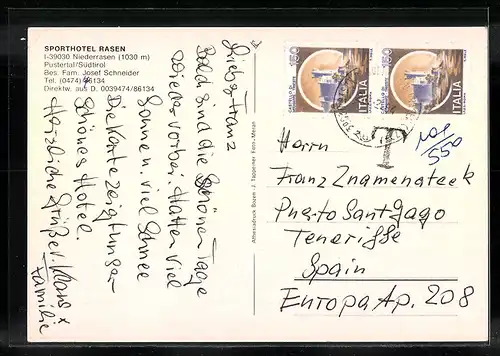 SPORTHOTEL RASEN
I-39030 Niederrasen (1030 m)
Pustertal/Südtirol
Bes. Fam. Josef Schneider
Tel. (0474) 86134
Direktw. aus D. 0039474/86134
Lieber Franz
Bald sind die schöner Tage
wieder vorbei. Hatten viel
Sonne u. viel Schnee
Die Karte zeigt unser
schönes Hotel.
Herzliche Grüße v.
Familie
Athesiadruck Bozen - J. Tappeiner Foto, Meran
150
CASTELLO DI
ITALIA
150
CASTELLO DI
ITALIA
T
550
Herrn
Franz Znamenateek
Puerto Santyago
Teneriffe
Spain
Europa Ap. 208